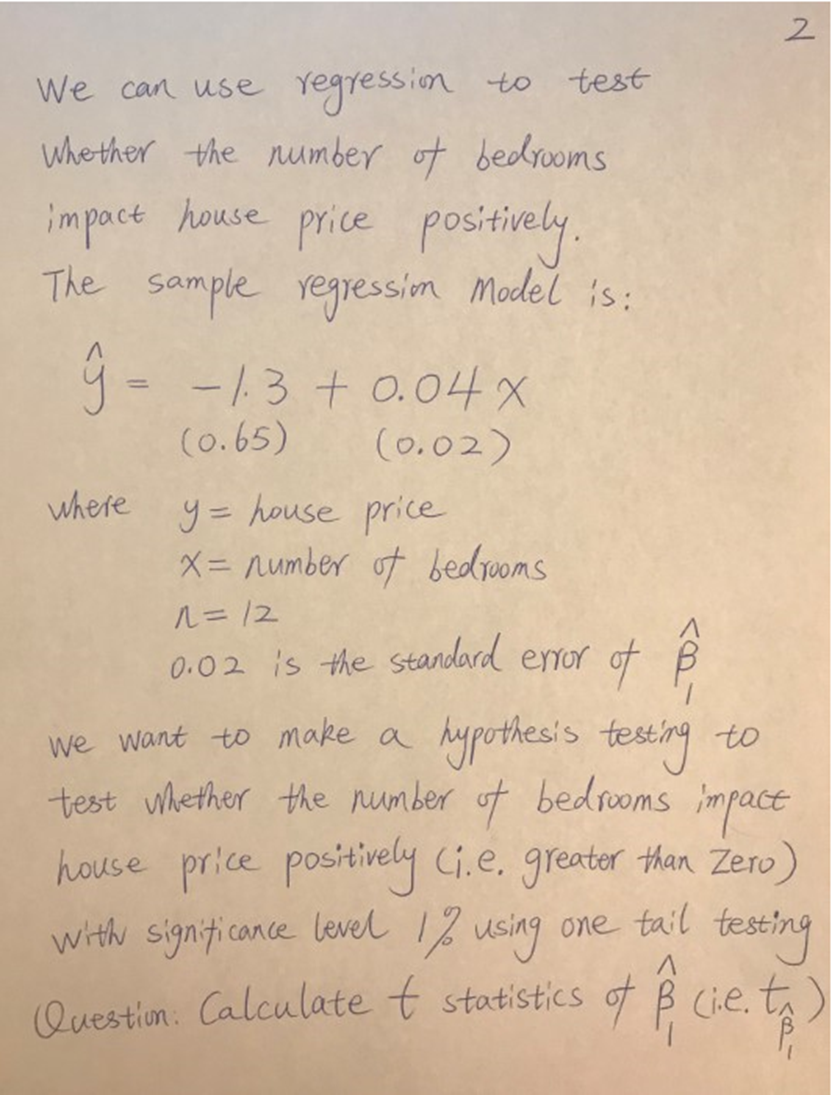 2
We can use regression to test
whether the number of bedrooms
impact house price positively.
The sample regression model is:
ŷ = -1.3 + 0.04x
(0.65) (0.02)
where y = house price
x = number of bedrooms
n = 12
0.02 is the standard error of β̂₁
we want to make a hypothesis testing to
test whether the number of bedrooms impact
house price positively (i.e. greater than zero)
with significance level 1% using one tail testing
Question: Calculate t statistics of β̂₁ (i.e. t_β̂₁)